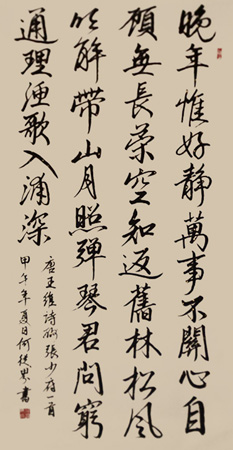 晚年惟好靜萬事不關心自
顧無長策空知返舊林松風
吹解帶山月照彈琴君問窮
通理漁歌入浦深
唐王維詩酬張少府一首
甲午年夏日何書